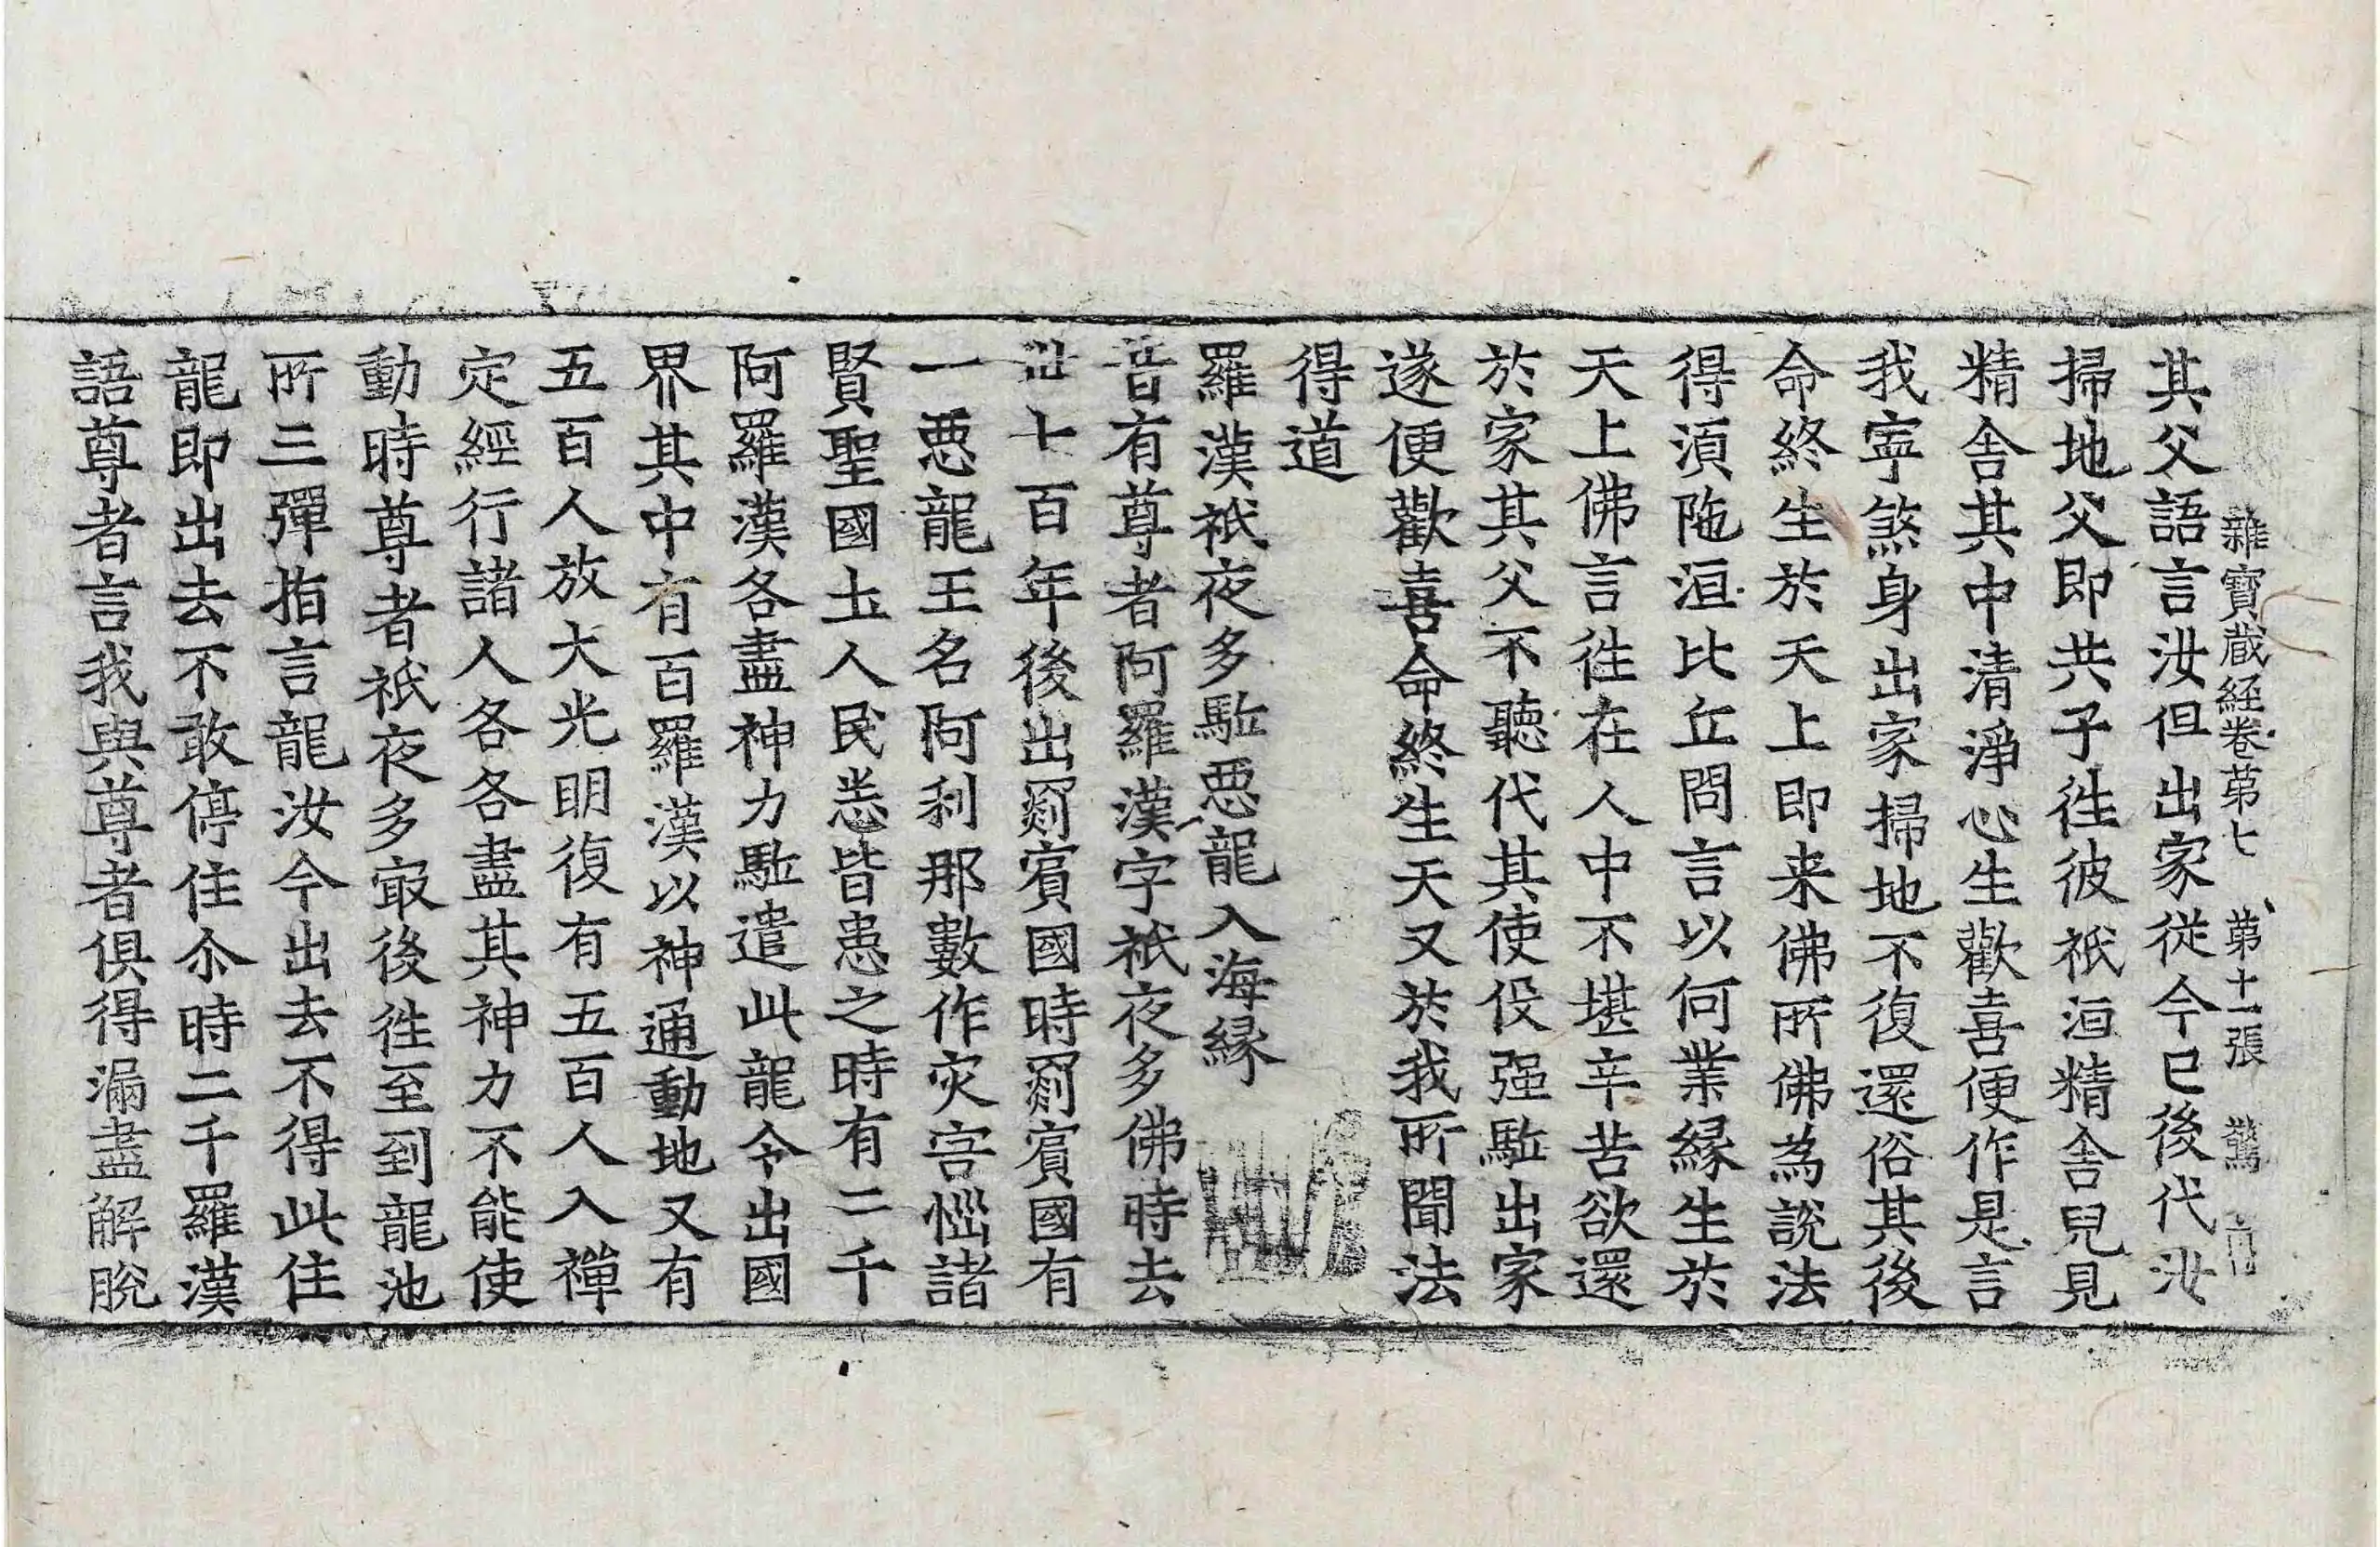 雜寶蔵経卷苐七 苐十一張 驚
其父語言汝但出家從今已後代汝
掃地父即共子徃彼祇洹精舍兒見
精舍其中清淨心生歡喜便作是言
我寜煞身出家掃地不復還俗其後
命終生於天上即来佛所佛為說法
得湏陁洹比丘問言以何業縁生於
天上佛言徃在人中不堪辛苦欲還
於家其父不聽代其使伇强駈出家
遂便歡喜命終生天又於我所聞法
得道
羅漢祇夜多駈悪龍入海縁
昔有尊者阿羅漢字祇夜多佛時去
世七百年後出罽賔國時罽賔國有
一悪龍王名阿利那數作灾害惱諸
賢聖國土人民悉皆患之時有二千
阿羅漢各盡神力駈遣此龍令出國
界其中有百羅漢以神通動地又有
五百人放大光明復有五百人入禪
定經行諸人各各盡其神力不能使
動時尊者祇夜多冣後徃至到龍池
所三彈指言龍汝今出去不得此住
龍即出去不敢停住尒時二千羅漢
語尊者言我與尊者俱得漏盡解脫